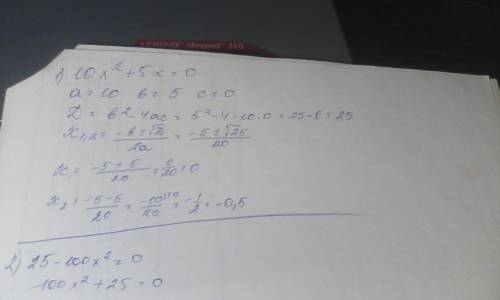 LENOVO ideapad 310
1) 10x² + 5x = 0
a = 10 b = 5 c = 0
D = b² - 4ac = 5² - 4·10·0 = 25 - 0 = 25
x₁,₂ = (-b ± √D)/2a = (-5 ± √25)/20
x₁ = (-5 + 5)/20 = 0/20 = 0
x₂ = (-5 - 5)/20 = -10/20 = -1/2 = -0,5
2) 25 - 100x² = 0
-100x² + 25 = 0